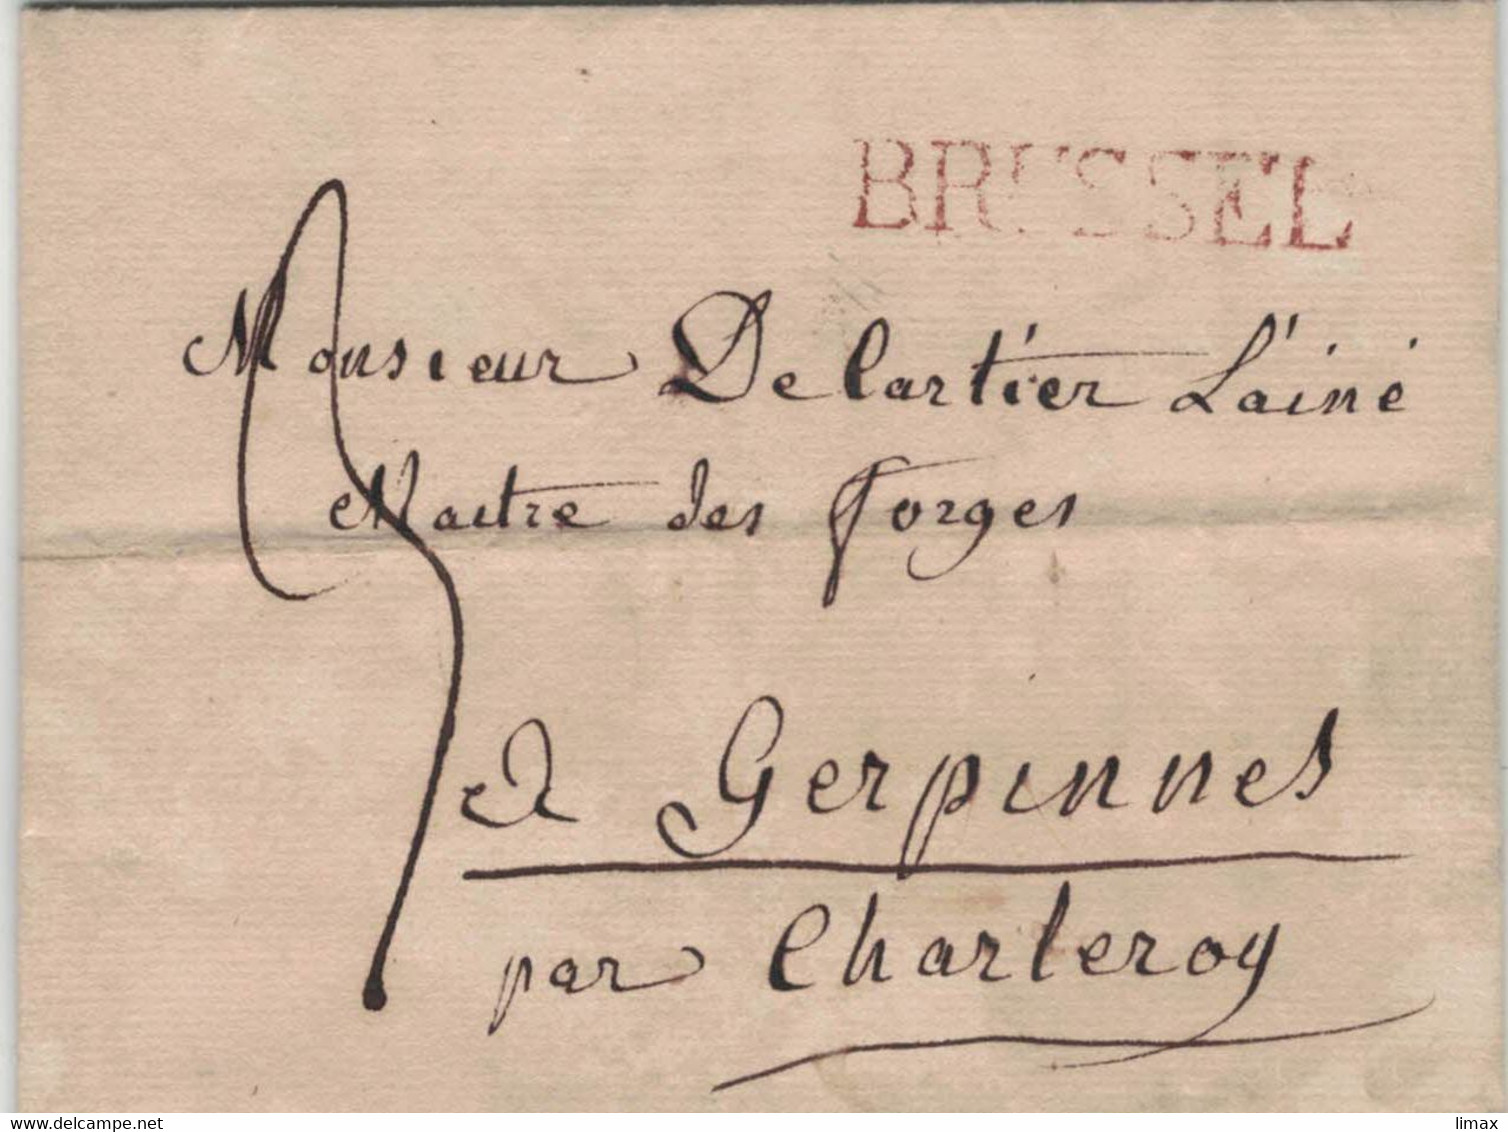 BRUSSEL
Monsieur Delartier L'ainé
Maitre des Forges
a Gerpinnes
par Charleroy
delcampe.net
limax